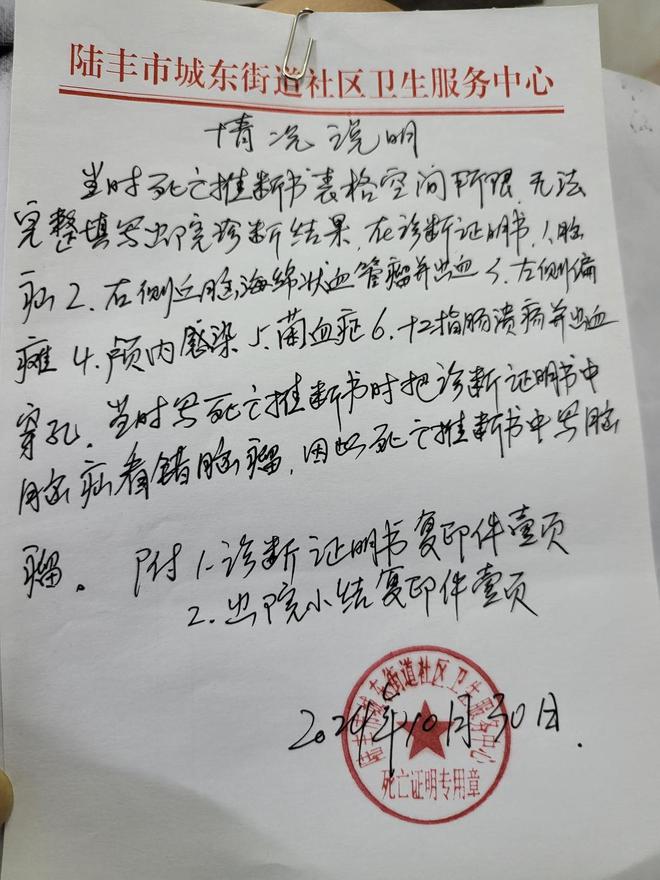 陆丰市城东街道社区卫生服务中心
情况说明
当时死亡推断书表格空间所限,无法
完整填写出院诊断结果,在诊断证明书,1.脑
疝2.右侧丘脑海绵状血管瘤并出血3.左侧偏
瘫4.颅内感染5.菌血症6.十二指肠溃疡并出血
穿孔。当时写死亡推断书时把诊断证明书中
脑疝看错脑瘤,因此死亡推断书中写脑
瘤。附1.诊断证明书复印件壹页
2.出院小结复印件壹页
2024年10月30日.
陆丰市城东街道社区卫生服务中心
死亡证明专用章